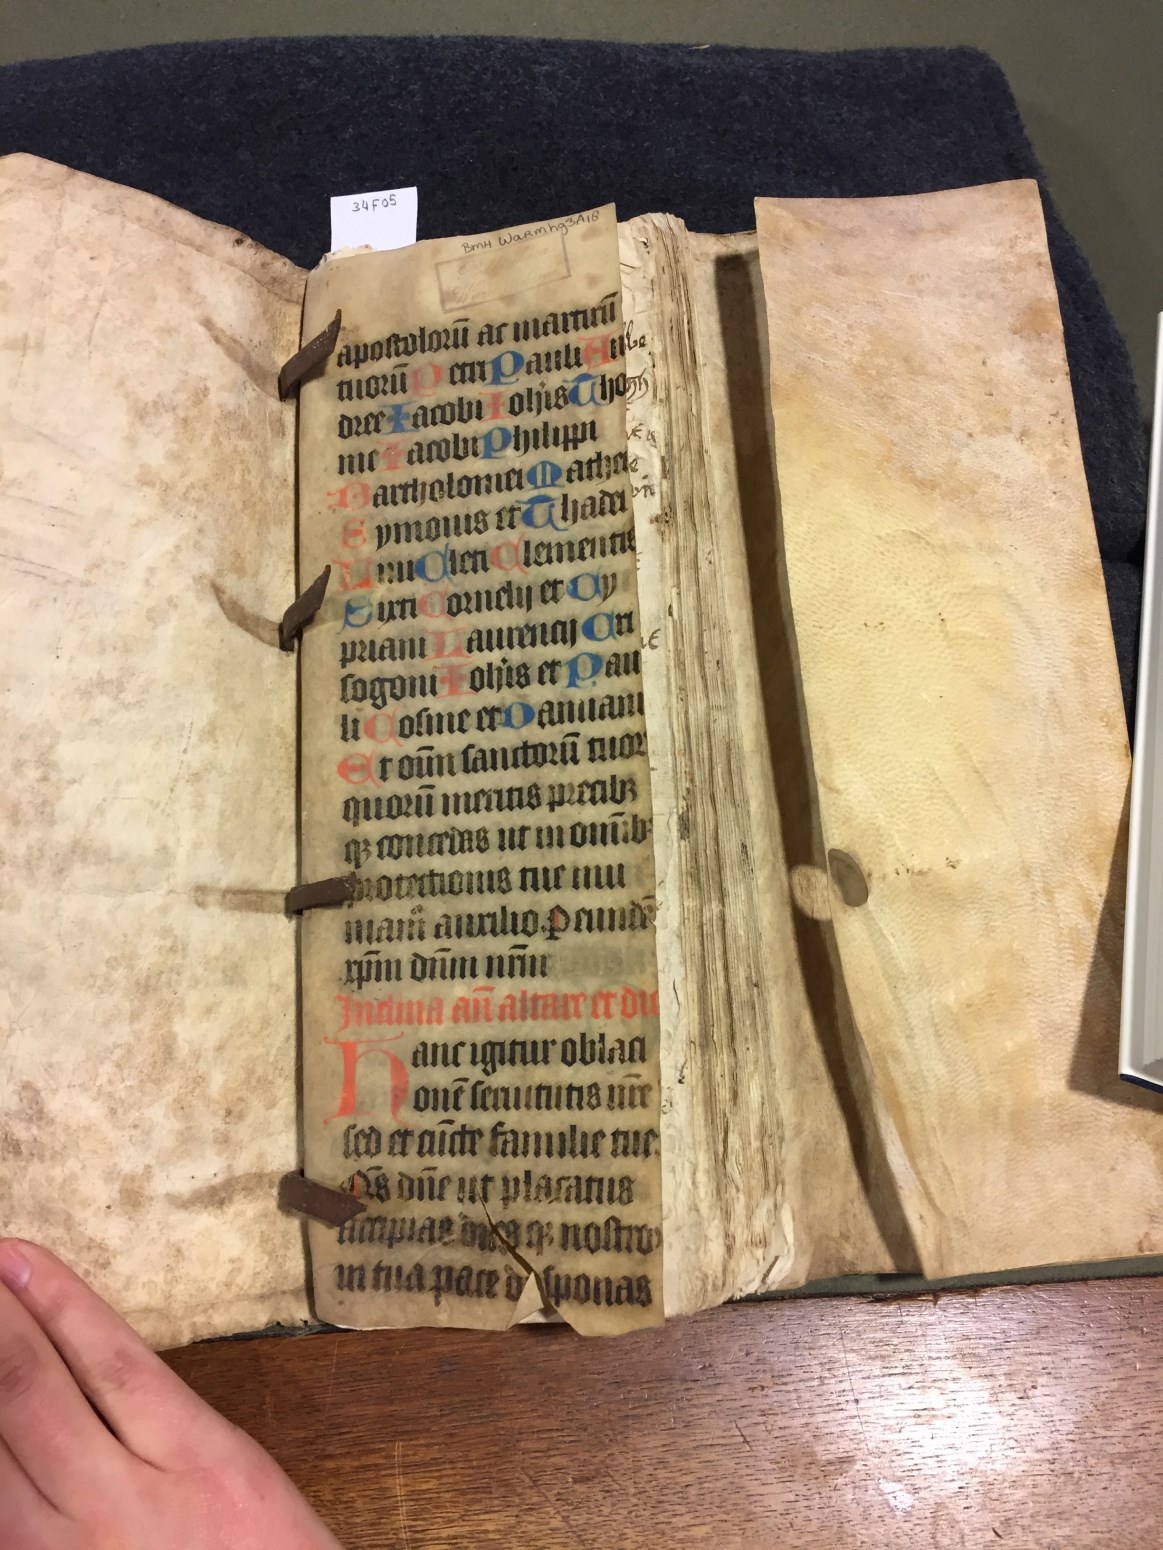 34F05
BMH Warmhg3A18
apostolorū ac martirū
tuorū Petri Pauli An
dree Iacobi Ioh̄is Tho
me Iacobi Philippi
Bartholomei Mathei
Symonis et Thadei
Lini Cleti Clementis
Sixti Cornelij et Cy
priani Laurencij Cri
sogoni Ioh̄is et Pau
li Cosme et Damiani
Et oīm sanctorū tuor
quorū meritis precibꝫ
qꝫ concedas ut in omībꝫ
protectionis tue mu
niam̄ auxilio. P eundē
xp̄m dn̄m nr̄m
Inclina an̄ altare et dic
Hanc igitur oblaci
onē seruitutis nr̄e
sed et cūcte familie tue
Qs̄ dn̄e ut placatus
accipias dies qꝫ nostros
in tua pace disponas